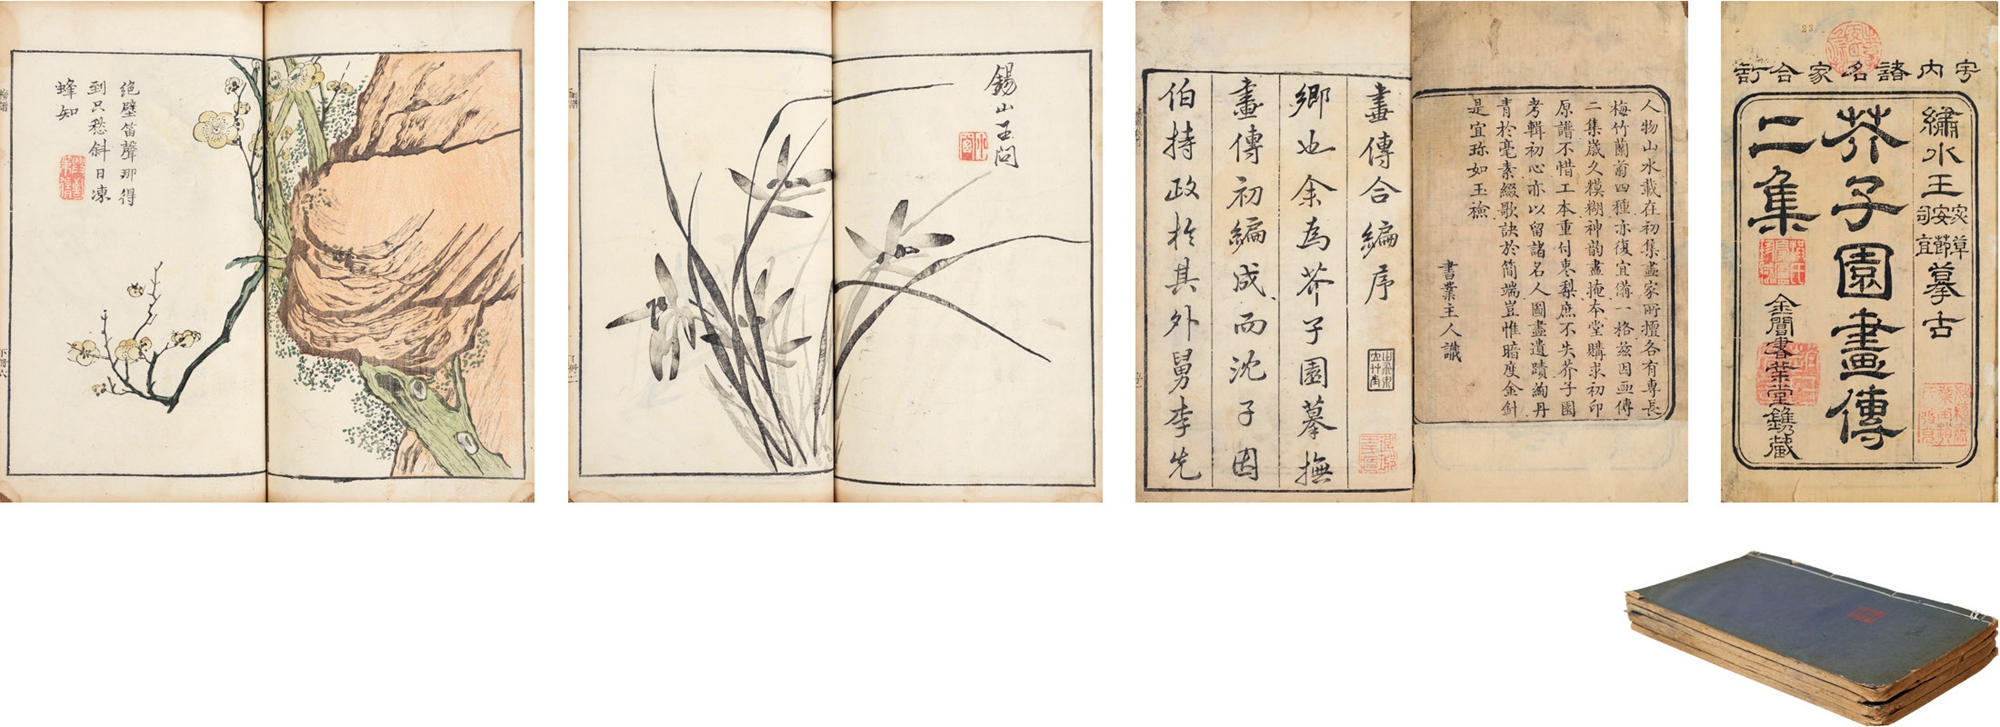 絶壁笛聲那得
到只愁斜日凍
蜂知
錫山王問
畫傳合編序
鄉也余為芥子園摹撫
畫傳初編成而沈子因
伯持政於其外舅李先
人物山水載在初集畫家所擅各有專長
梅竹蘭菊四種亦復宜備一格茲因画傳
二集歲久糢糊神韵盡掩本堂購求初印
原譜不惜工本重付棗梨庶不失芥子園
考輯初心亦以留諸名人圖畫遺蹟絢丹
青於毫素綴歌訣於簡端豈惟暗度金針
是宜珎如玉
書業主人識
23
宇内諸名家合訂
繡水王安節宓草司直摹古
芥子園畫傳
二集
金閶書業堂鐫藏